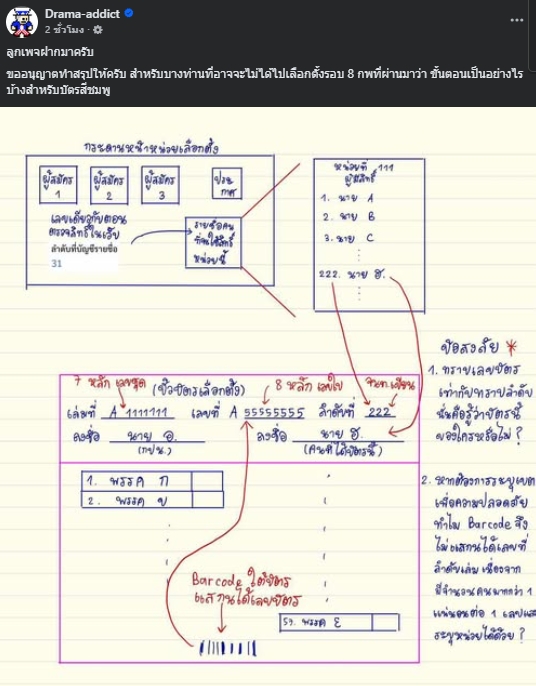 Drama-addict
2 ชั่วโมง ·
ลูกเพจฝากมาครับ
ขออนุญาตทำสรุปให้ครับ สำหรับบางท่านที่อาจจะไม่ได้ไปเลือกตั้งรอบ 8 กพที่ผ่านมาว่า ขั้นตอนเป็นอย่างไร
บ้างสำหรับบัตรสีชมพู
กระดานหน้าหน่วยเลือกตั้ง
ผู้สมัคร 1
ผู้สมัคร 2
ผู้สมัคร 3
ประกาศ
เลขเดียวกับตอน
ตรวจสิทธิ์ในเว็บ
ลำดับที่บัญชีรายชื่อ
31
รายชื่อคน
ที่จะใช้สิทธิ์
หน่วยนี้
หน่วยที่ 111
ผู้มีสิทธิ์
1. นาย A
2. นาย B
3. นาย C
222. นาย ฮ.
7 หลัก เลขชุด
(ขั้วบัตรเลือกตั้ง)
8 หลัก เลขใบ
จนท. เขียน
เล่มที่ A 1111111 เลขที่ A 55555555 ลำดับที่ 222
ลงชื่อ นาย อ. ลงชื่อ นาย ฮ.
(กปน.) (คนที่ได้บัตรนี้)
1. พรรค ก
2. พรรค ข
Barcode ใต้บัตร
แสกนได้เลขบัตร
57. พรรค
ข้อสงสัย *
1. ทราบเลขบัตร
เท่ากับทราบลำดับ
นั่นคือรู้ว่าบัตรนี้
ของใครหรือไม่ ?
2. หากต้องการระบุเขต
เพื่อความปลอดภัย
ทำไม Barcode จึง
ไม่แสกนได้เลขที่
ลำดับเล่ม เนื่องจาก
มีจำนวนคนมากกว่า 1
แน่นอนต่อ 1 เลขและ
ระบุหน่วยได้ด้วย ?